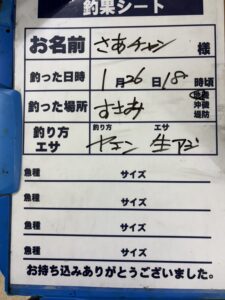 釣果シート
お名前 さあチャン 様
釣った日時 1月26日18時頃
釣った場所 すさみ 沖磯 堤防
釣り方 エサ
釣り方 ヤエン エサ 生アジ
魚種 サイズ
魚種 サイズ
魚種 サイズ
魚種 サイズ
お持ち込みありがとうございました。